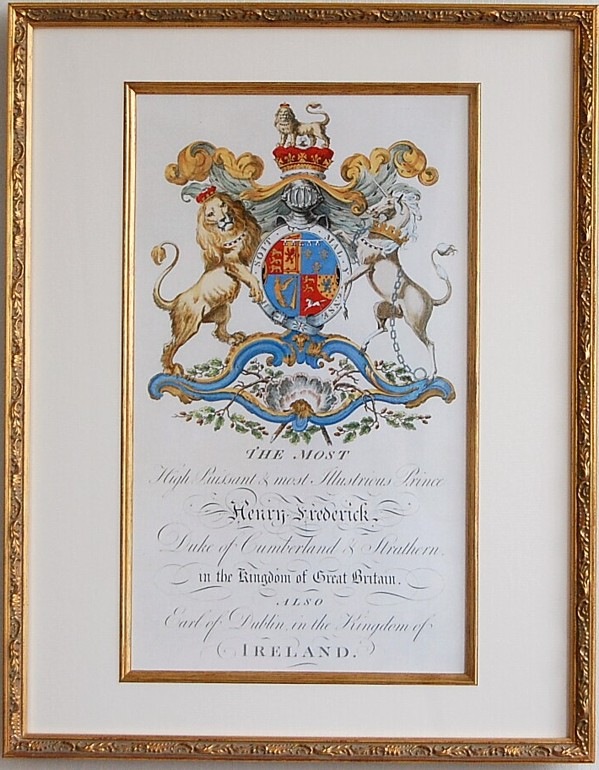 HONI SOIT MAL
THE MOST
High Puissant & most Illustrious Prince
Henry-Frederick,
Duke of Cumberland & Strathern,
in the Kingdom of Great Britain.
ALSO
Earl of Dublin, in the Kingdom of
IRELAND.